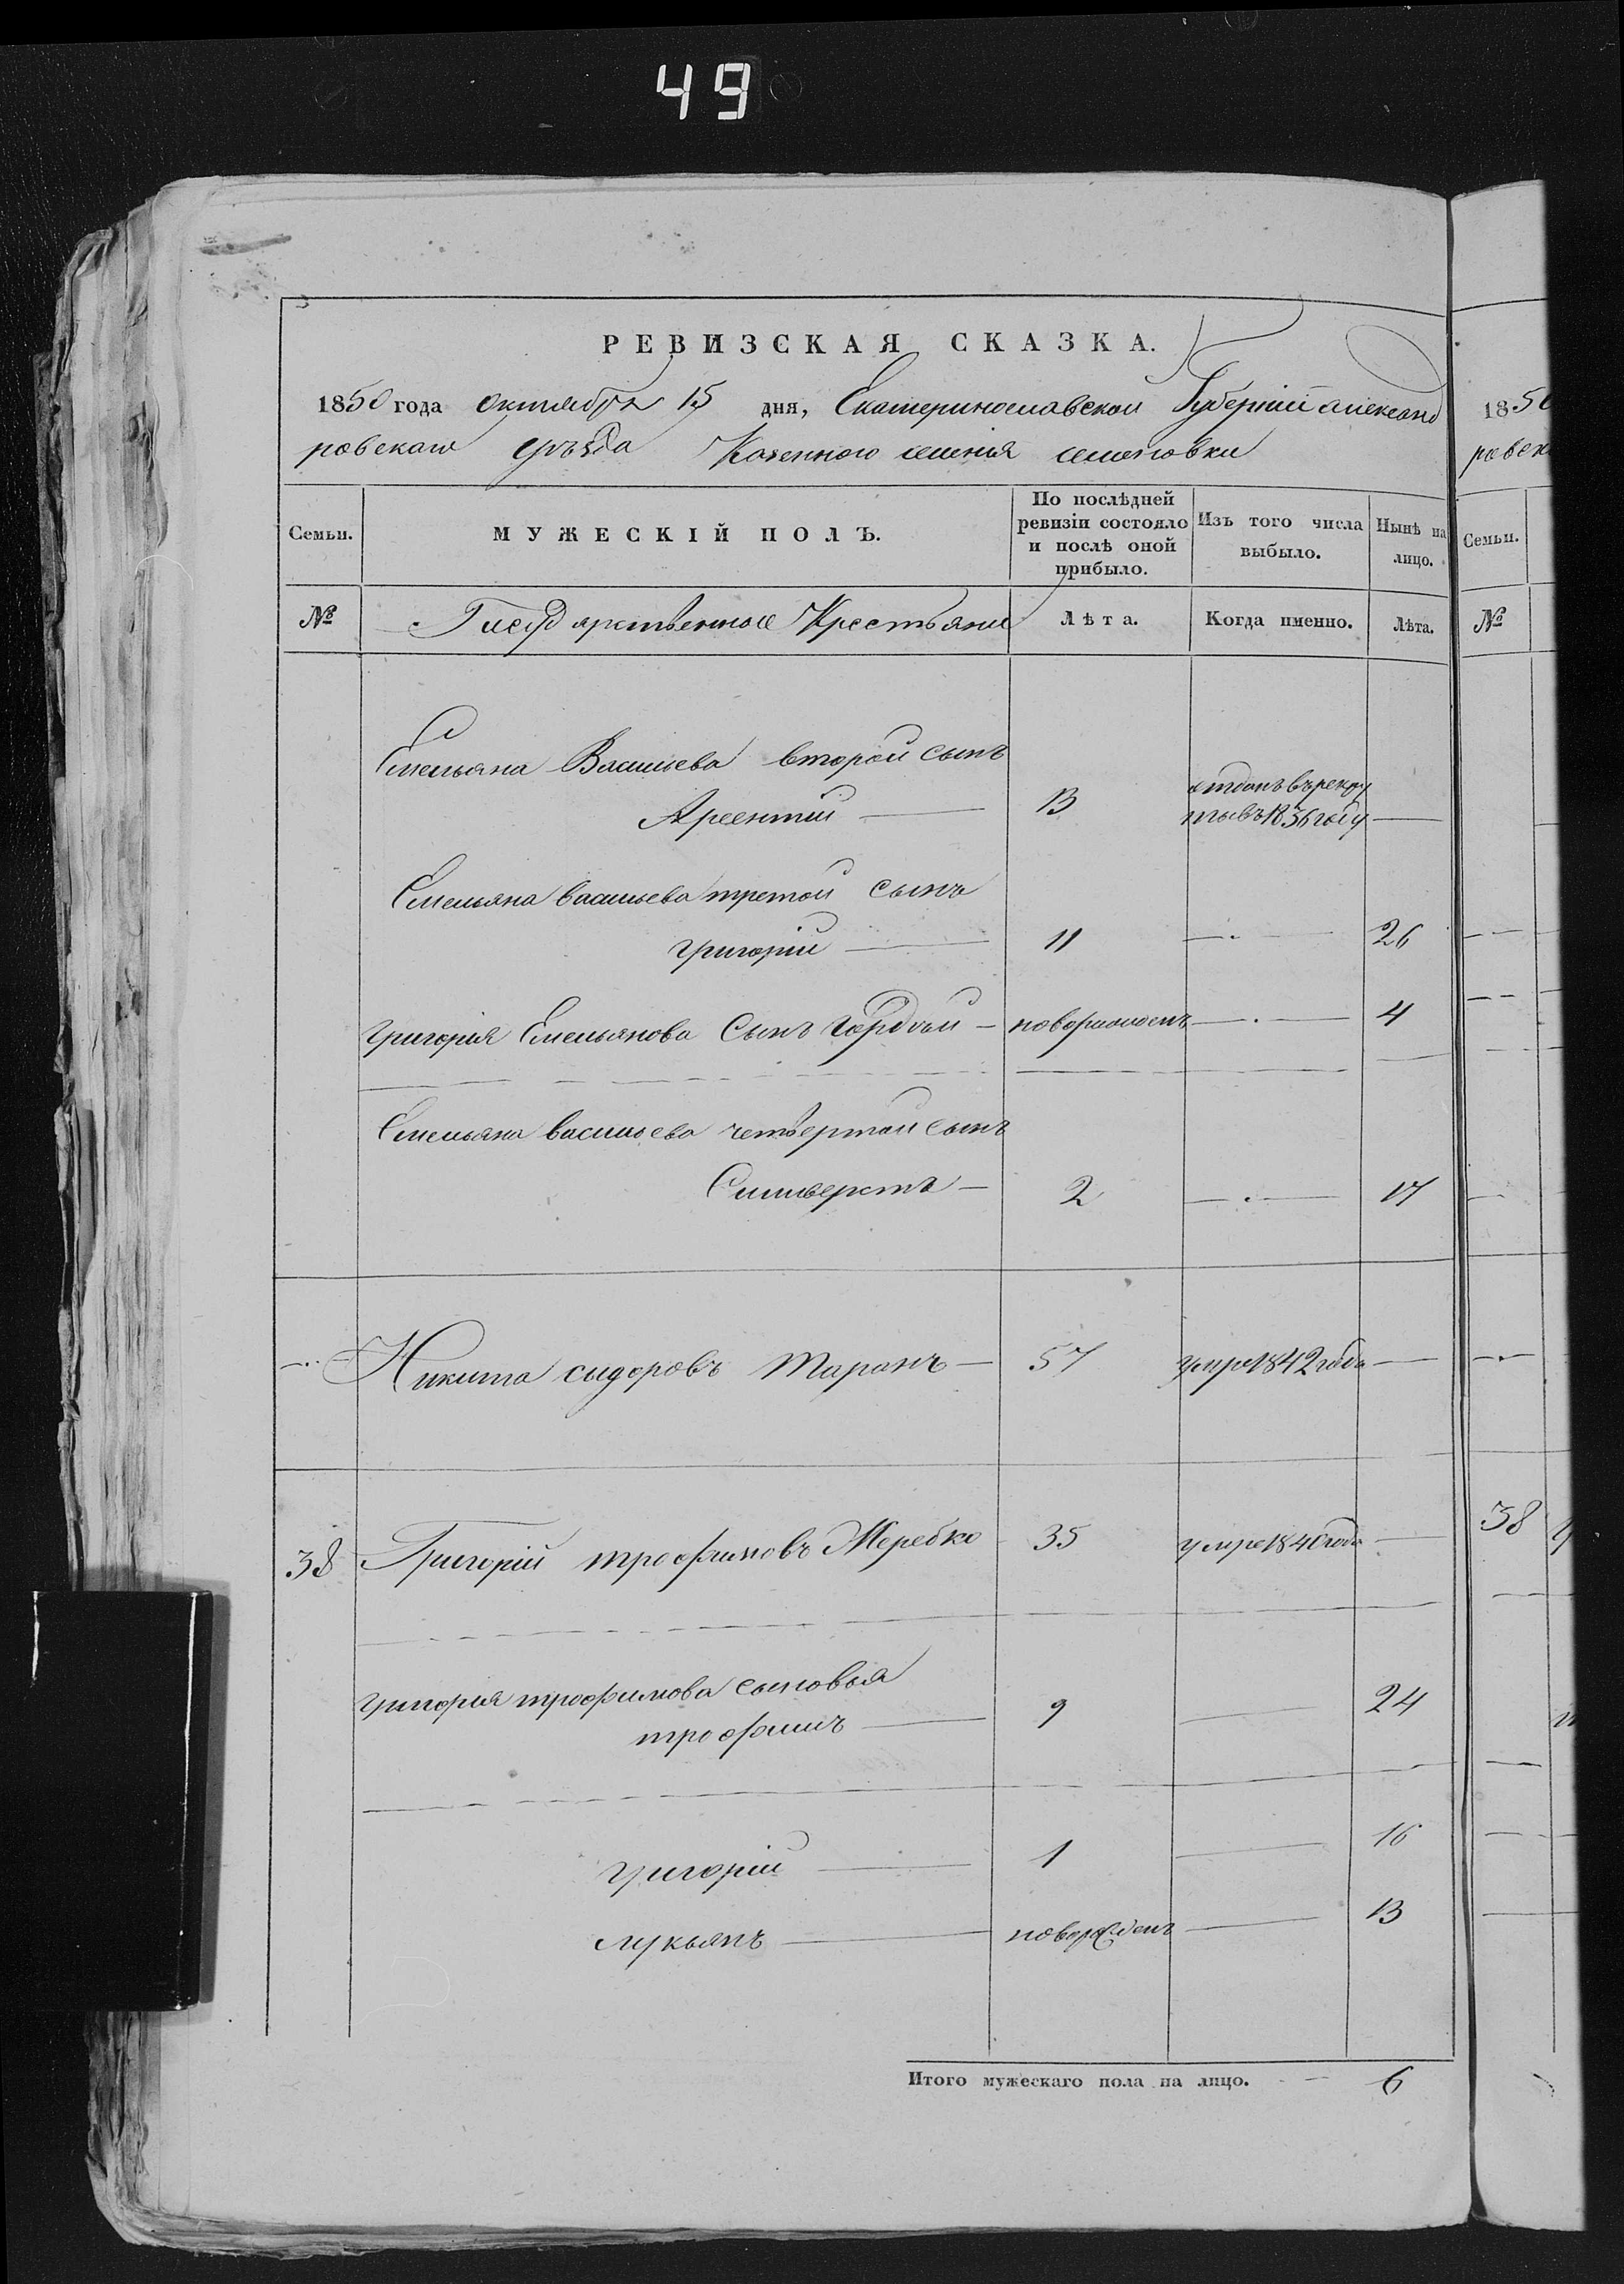 49
РЕВИЗСКАЯ СКАЗКА.
1850 года октября 15 дня, Екатеринославской Губерніи александ
ровскаго уѣзда Казенного селенія
Семьи.
МУЖЕСКІЙ ПОЛЪ.
По послѣдней ревизіи состояло и послѣ оной прибыло.
Изъ того числа выбыло.
Нынѣ на лицо.
№
Государственные Крестьяне
Лѣта.
Когда именно.
Лѣта.
Емельяна Васильева второй сынъ
Арсентий — 13 отданъ въ рекру
ты въ 1836 году —
Емельяна васильева третой сынъ
григорій — 11 —·— 26
григорія Емельянова Сынъ Гордѣй — новорожденъ —·— 4
Емельяна васильева четвертой сынъ
Силиверстъ — 2 —·— 17
Никита сидоровъ Таранъ — 57 умре 1842 года —
38 Григорій трофимовъ Жеребко 35 умре 1840 года —
григория трофимова сыновья
трофимъ — 9 — 24
григорій — 1 — 16
лукьянъ — новорожденъ — 13
Итого мужескаго пола на лицо. — 6
185
ровск
Семьи.
№
38